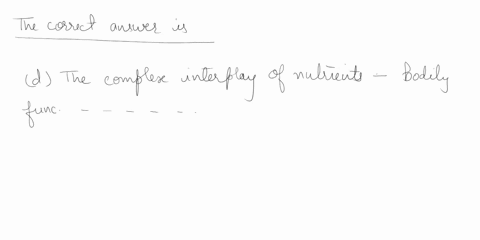 The correct answer is
(d) The complex interplay of nutrients – Bodily
func. – – – – – . .